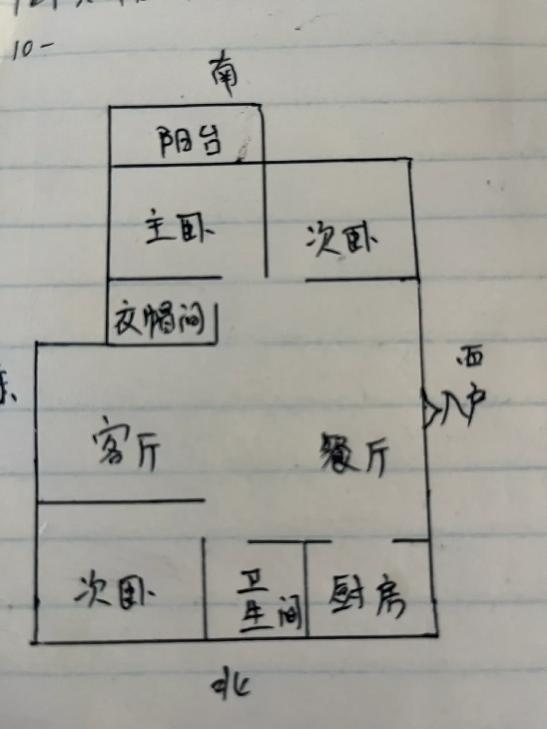 10-
南
阳台
主卧
次卧
衣帽间
西
入户
客厅
餐厅
次卧
卫生间
厨房
北